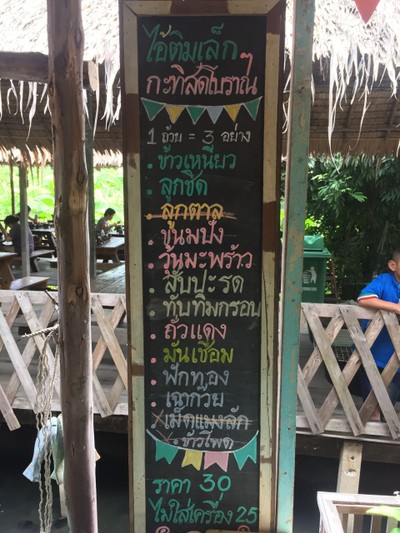 ไอ้ติมเล็ก
กะทิสดโบราณ
1 ถ้วย = 3 อย่าง
. ข้าวเหนียว
. ลูกชิด
. ลูกตาล
. ขนมปัง
. วุ้นมะพร้าว
. สับปะรด
. ทับทิมกรอบ
. ถั่วแดง
. มันเชื่อม
. ฟักทอง
. เฉาก๊วย
. เม็ดแมงลัก
. ข้าวโพด
ราคา 30
ไม่ใส่เครื่อง 25